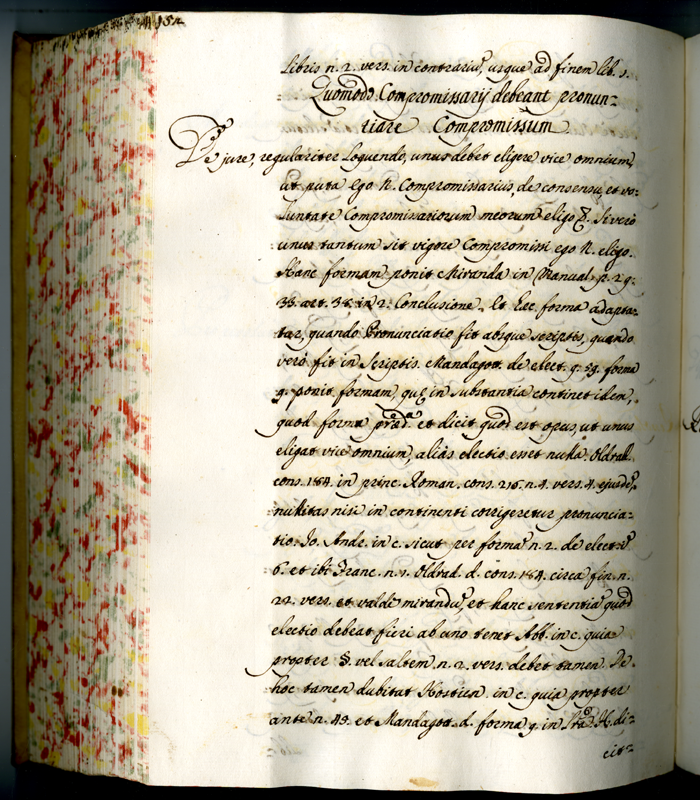 Libris n. 2. vers. in contrariu, usque ad finem lib. 1.
Quomodo Compromissarij debeant pronun-
tiare Compromissum
De jure, regulariter loquendo, unus debet eligere vice omnium,
ut puta Ego N. Compromissarius, de consensu, et vo-
luntate Compromissariorum meorum eligo N. Si vero
unus tantum sit vigore Compromissi ego N. eligo.
Hanc formam ponit Miranda in Manual. p. 2. q.
38. art. 38. in 2. Conclusione. Et haec forma adapta-
tur, quando Pronunciatio fit absque scriptis, quando
verò fit in Scriptis. Mandagot. de elect. q. 59. forma
9. ponit formam, quę in substantia continet idem,
quod forma præd.ª et dicit quod est opus, ut unus
eligat vice omnium, aliàs electio esset nulla. Oldrad.
cons. 184. in princ. Roman. cons. 216. n. 4. vers. 4. ejusde
nullitas nisi in continenti corrigeretur pronuncia-
tio. Jo. Andr. in c. sicut per forma n. 2. de elect.
6. et ibi Franc. n. 1. Oldrad. d. cons. 184. circa fin. n.
22. vers. et valdè mirandu, et hanc sententia quod
electio debeat fieri ab uno tenet Abb. in c. quia
propter §. vel saltem n. 2. vers. debet tamen. De
hoc tamen dubitat Hostien. in c. quia propter
ante n. 43. et Mandagot. d. forma 9. in H. di-
cit-